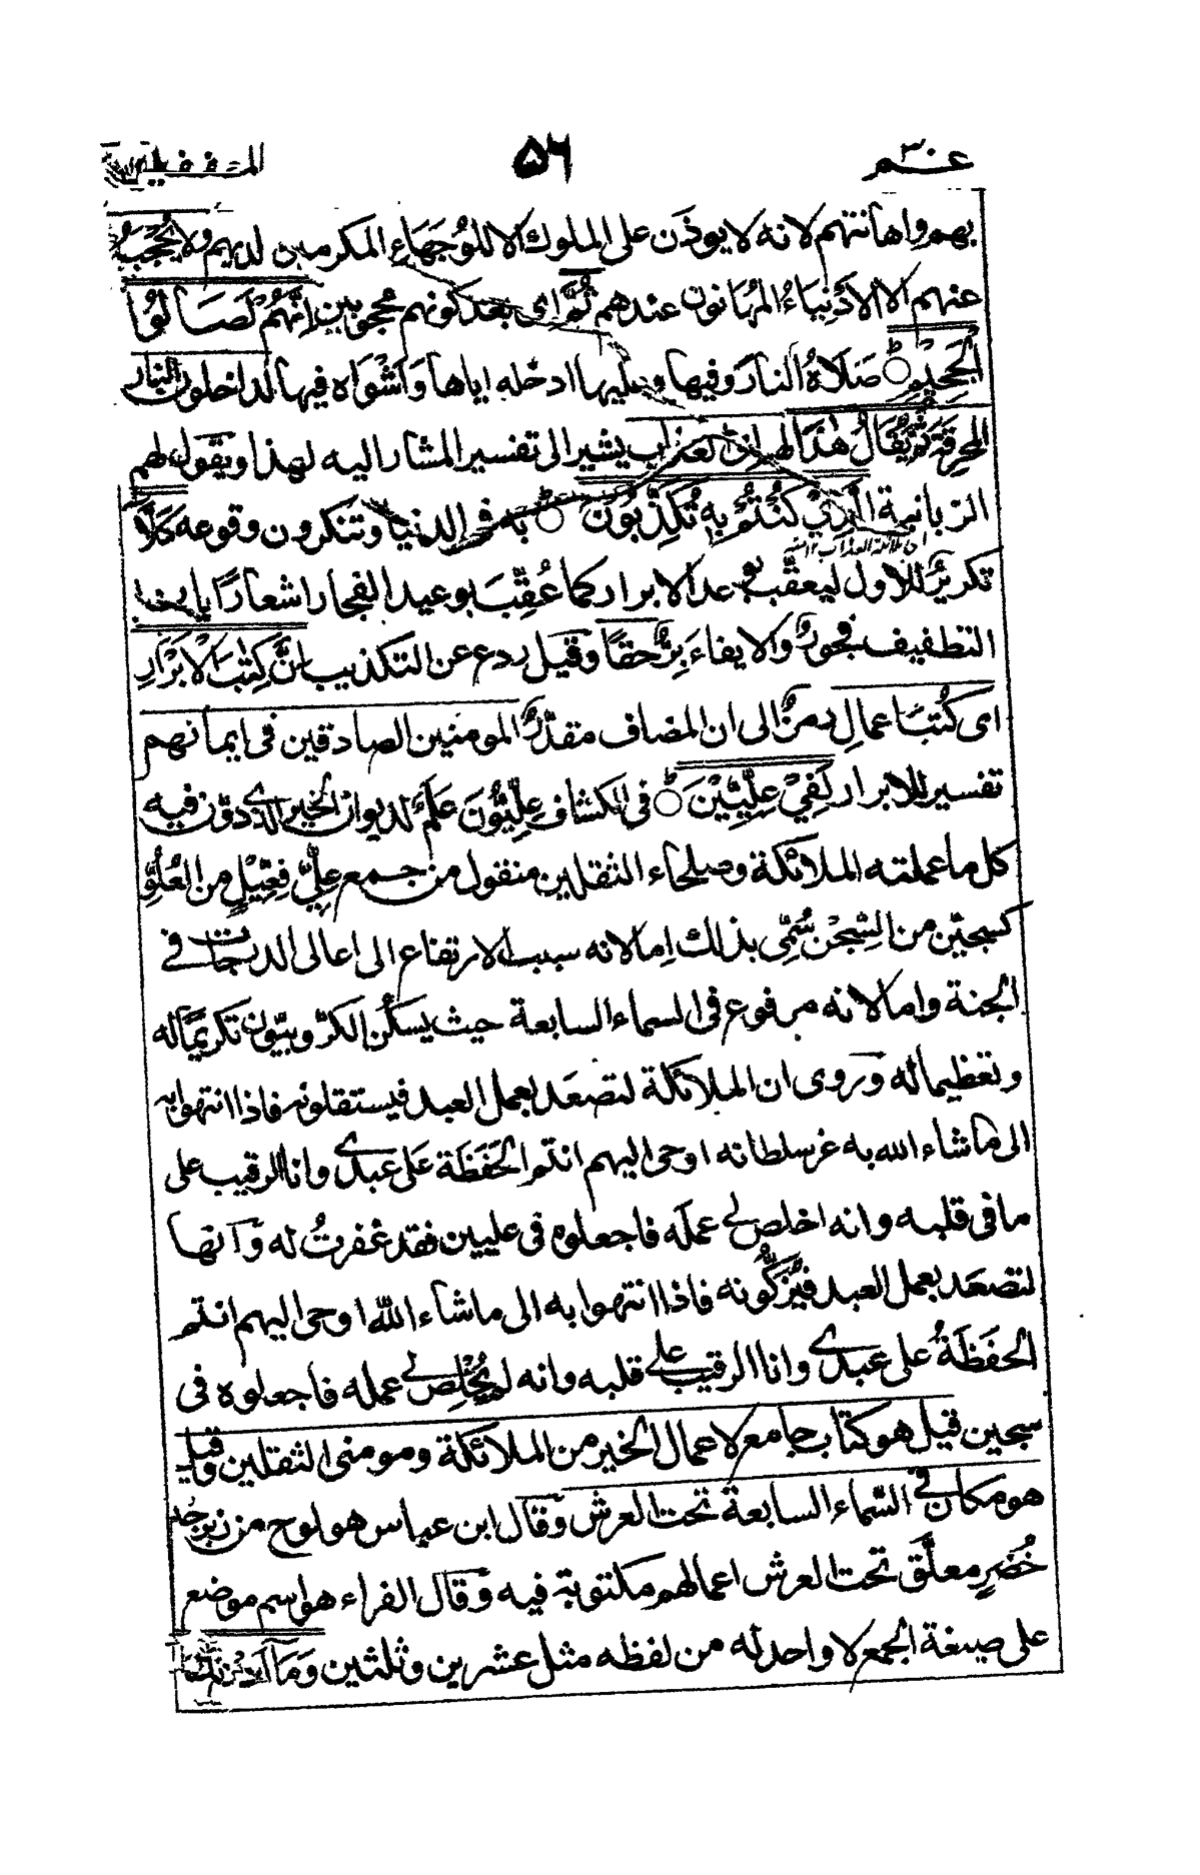 عـم ٣٠
٥٦
المطففين
بهم واهانتهم لانه لا يوذَن على الملوك الا للوُجَهَاءِ المكرمين لديهم ولا يُحْجَبُ
عنهم الا الاَدْنِيَاءُ المُهَانون عندهم ثُمَّ اى بعد كونهم محجوبين اِنَّهُمْ لَصَالُوا
الْجَحِيْمِ ۞ صَلَاهُ النارَ وفيها وعليها ادخله اياها وَاَشْوَاه فيها لداخلون النار
المحرقَة ثُمَّ يُقَالُ هٰذَا اى العذاب يشير الى تفسير المشار اليه لهذا ويقول لهم
الزبانية الَّذِيْ كُنْتُمْ بِهٖ تُكَذِّبُوْنَ ۞ به فى الدنيا وتنكرون وقوعه كَلَّا
اى ملائكة العذاب ١٢ منه
تكريرٌ للاول ليعقَّب بوعد الابرار كما عُقِّبَ بوعيد الفجار اشعارًا بان
التطفيف فجورٌ والايفاءَ بِرٌّ حقًا وقيل ردع عن التكذيب اِنَّ كِتٰبَ الْاَبْرَارِ
اى كُتبَ اعمالِ رمزٌ الى ان المضاف مقدَّرٌ المومنين الصادقين فى ايمانهم
تفسير للابرار لَفِيْ عِلِّيِّيْنَ ۞ فى الكشاف عِلِّيُّوْنَ عَلَمٌ لديوان الخير الذى دوّن فيه
كل ما عملته الملائكة وصلحاء الثقلين منقول من جمع عِلِّيٍّ فِعِّيْلٍ من العُلُوِّ
كسجين من السِّجْن سُمِّى بذلك اِما لانه سبب الارتفاع الى اعالى الدرجات فى
الجنة واما لانه مرفوع فى السماء السابعة حيث يسكُن الكرّوبيّون تكريمًا له
وتعظيما له وَروى ان الملائكة لتصعَد بعمل العبد فيستقلونه فاذا انتهوا به
الى ما شاء الله به من سلطانه اوحى اليهم انتم الحَفَظَة عَلى عبدى وانا الرقيب على
ما فى قلبه وانه اخلص لى عملَه فاجعلوه فى عليين فقد غفرتُ له وَانها
لتصعَد بعمل العبد فيُزَكُّونه فاذا انتهوا به الى ما شاء اللّه اوحى اليهم انتم
الحَفَظَةُ على عبدى وانا الرقيب على قلبه وانه لم يُخْلِص لى عمله فاجعلوه فى
سجين قيل هو كتاب جامع لاعمال الخير من الملائكة ومومنى الثقلين وقيل
هو مكان فى السَّماء السابعة تحت العرش وَقال ابن عباس هو لوح من زبرجد
خُضرٍ معلَّق تحت العرش اعمالهم مكتوبة فيه وَقال الفراء هو اسم موضع
على صيغة الجمع لا واحد له من لفظه مثل عشرين وثلثين وَمَآ اَدْرٰىكَ